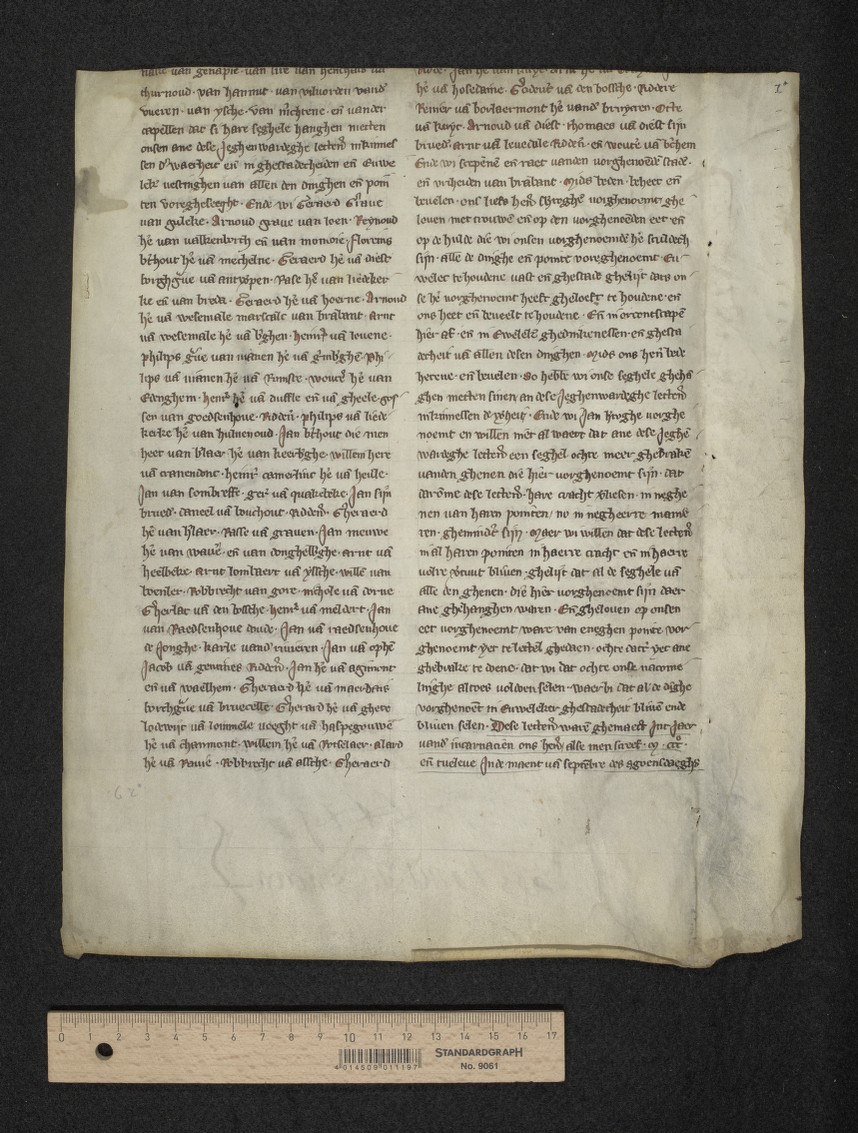 thurnoud · van hannut · van vilvorden vand̉
vueren · van ysche · van m̉chtene · en̄ vander
capellen dat si hare seghele hanghen metten
onsen ane dese Jeghenwardeghe letter̄ in kinnes
sen d̉ waerheit en̄ in ghestadecheiden en̄ Euwe
leke vestinghen van allen den dinghen en̄ poin
ten voregheseght · Ende wi Geraerd Graue
van guleke · Arnoud graue van loen · Reynoud
hẻ van valkenborch en̄ van monioie · florens
bt̉hout hẻ vā mechelne · Geraerd hẻ vā diest
borghg̉ue vā antw̉pen · Rase hẻ van liedeker
ke en̄ van breda · Geraerd hẻ vā hoerne · Arnoud
hẻ vā wesemale marscalc van brabant · arnt
vā wesemale hẻ vā b̉ghen · henrỉ vā louene ·
philips g̉ue van vianen hẻ vā gīmb̉ghē · Phi
lips vā vianen hẻ vā Rumste · woutẻ hẻ van
Edenghem · henr̉ hẻ vā duffle en̄ vā gheele · gos
sen van goedsenhoue · Riddẻn · philips vā liede
kerke hẻ van hulnenoud · Jan bt̉hout die men
heet van b̉laer hẻ van keerb̉ghe · willem here
vā cranendonc · heinr̉ camerlinc hẻ vā heille ·
Jan van sombreffe · ger̉ vā quakebeke · Jan sijn
brued̉ · daneel vā bouchout · Riddẻn · Gheraerd
hẻ van hlaer · Rasse vā grauen · Jan meuwe
hẻ van wauẻ · en̄ van donghelb̉ghe · arnt vā
heelbeke · arnt lombaert vā yssche · willē van
boenler · Robbrecht van gore · nichole vā dorne
Gherlac vā den bossche · henr̉ vā meldert · Jan
van Raedsenhoue doude · Jan vā raedsenhoue
de Jonghe · karle vand̉ riuieren · Jan vā ophē
Jacob vā gentines Riddẻn · Jan hẻ vā agimont
en̄ vā waelhem · Gheraerd hẻ vā maerbais
borchg̉ue vā bruecelle · Gherard hẻ vā ghete
lodewijc vā lommele voeght vā haspegouwē
hẻ vā chaumont · willem hẻ vā Rotselaer · alard
hẻ vā Rauie · Robbrecht vā assche · Gheraerd
hẻ vā hosedaine · Godeuẻt vā den bossche · Riddere
Reiner vā borlaermont hẻ vand̉ bruyeren · Otte
vā kuyc · Arnoud vā diest · thomaes vā diest sijn
brued̉ · arnt vā leuedale Riddẻn · en̄ woutẻ vā b̉chem
Ende wi scepēnē en̄ raet vanden vorghenoēde stade ·
en̄ vriheiden van brabant · Mids beden · beheet en̄
beuelen · ons liefs hen̉ s̉hrtoghē vorghenoemt ghe
louen met trouwē en̄ op den vorghenoēden eet en̄
op de hulde die wi onsen vorghenoemdē hẻ sculdech
sijn · alle de dinghe en̄ pointe voreghenoemt · En̄
welec te houdene vast en̄ ghestade ghelijc dats on
se hẻ vorghenoemt heeft gheloeft te houdene · en̄
ons heet en̄ beueelt te houdene · En̄ in orcontscape
hier af · en̄ in Ewelekē ghedinkenessen · en̄ ghesta
decheit vā allen desen dinghen · Mids ons hen̉ bede
herene · en̄ beuelen · So hebbē wi onse seghele ghehā
ghen metten sinen an dese Jeghenwardeghe letter̄
in kinnessen d̉ w̉heit · Ende wi Jan h̉toghe vorghe
noemt en̄ willen mēt al waert dat ane dese Jeghē
wardeghe letter̄ een seghel ochte meer ghebrake
vanden ghenen die hier vorghenoemt sijn · dat
daromē dese letter̄ · hare cracht v̉liesen · in neghe
nen van haren pointen / no in negheerre maniē
ren · ghemindr̉t sijn · Maer wi willen dat dese letter̄
in al haren pointen in haerre cracht en̄ in haerre
volre v̉tuut bliuen · ghelijc dat al de seghele vā
alle den ghenen · die hier vorghenoemt sijn daer
ane ghehanghen waren · En̄ ghelouen op onsen
eet vorghenoemt ware van eneghen pointe vor
ghenoemt yet te lettel ghedaen · ochte datr̉ yet ane
ghebrake te doene · dat wi dat ochte onse nacome
linghe altoes voldoen selen · waerbi dat al de dighe
vorghenoēt in Euweleker ghestadecheit bliuē ende
bliuen selen · Dese letter̄ warē ghemaect Int Jaer
vand̉ incarnacien ons hen̉ / alse men screef · M · ccc°·
en̄ tueleue Inde maent vā septēbre des sgoensdaeghs
1°
62°
0 1 2 3 4 5 6 7 8 9 10 11 12 13 14 15 16 17
4 014509 011197
STANDARDGRAPH
No. 9061